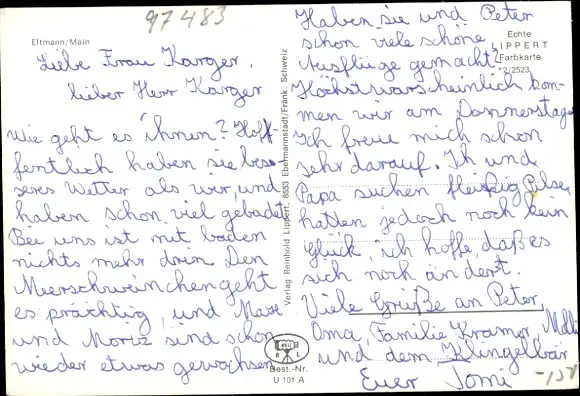 97483
Eltmann/Main
Liebe Frau Karger,
lieber Herr Karger
Wie geht es ihnen? Hof-
fentlich haben sie bes-
seres Wetter als wir, und
haben schon viel gebadet.
Bei uns ist mit baden
nichts mehr drin. Den
Meerschweinchen geht
es prächtig, und Max
und Moriz sind schon
wieder etwas gewachsen.
Verlag Reinhold Lippert, 8553 Ebermannstadt/Fränk. Schweiz
Echte
LIPPERT
Farbkarte
2/2523
Haben sie und Peter
schon viele schöne
Ausflüge gemacht?
Höchstwarscheinlich kom-
men wir am Donnerstag.
Ich freue mich schon
sehr darauf. Ich und
Papa suchen fleißig Pilse,
hatten jedoch noch kein
Glück, ich hoffe, daß es
sich noch ändert.
Viele Grüße an Peter,
Oma, Familie Kramer,
und dem Klingelbär
Euer Tomi
RELI
R L
Best.-Nr.
U 101 A